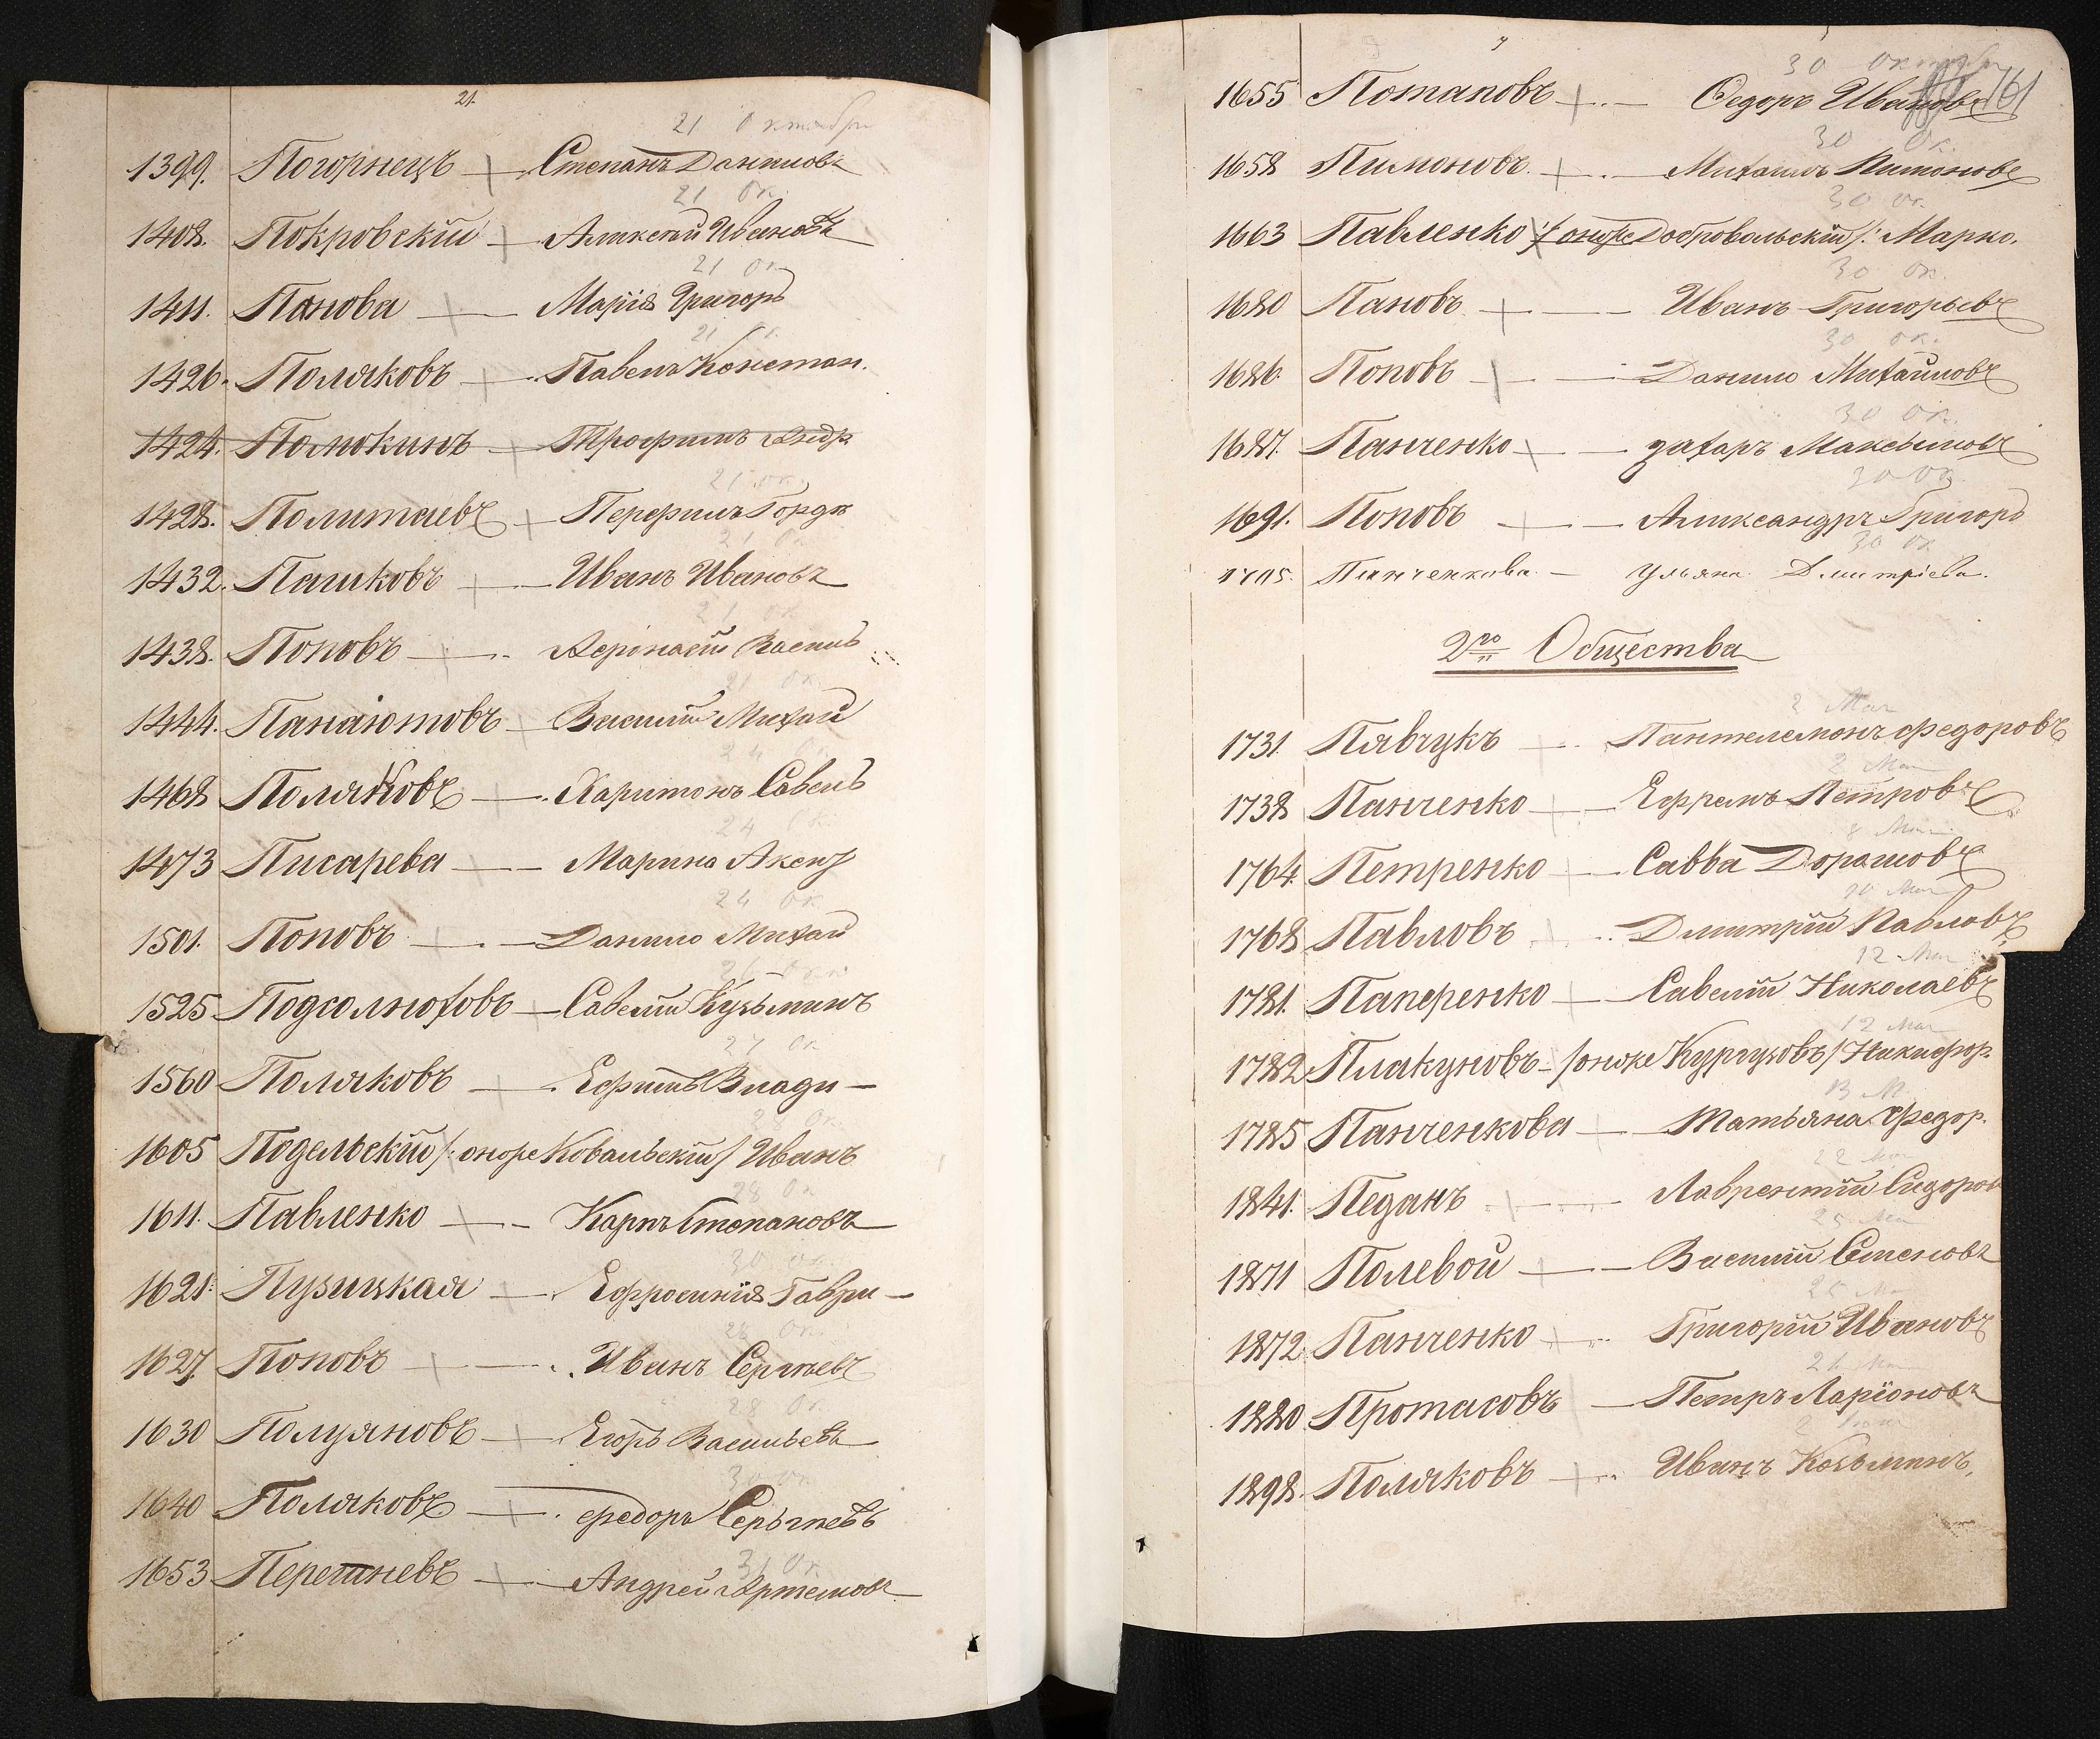 21.
21 Октября
1399. Погорнецъ — Степанъ Даниловъ
21 Ок.
1408. Покровскій — Аликсѣй Ивановъ
21 Ок
1411. Панова — Марія Григорь
21 Ок.
1426. Поляковъ — Павелъ Констан.
1424. Помокинъ — Трофимъ Андр.
21 Ок.
1428. Политаевъ — Перфилъ Гордѣ
21 Ок
1432. Пашковъ — Иванъ Ивановъ
21 Ок
1438. Поповъ — Афонасій Василь
21 Ок.
1444. Панаіотовъ — Василій Михай
24 Ок
1468 Поляковъ — Харитонъ Савель
24 Ок.
1473 Писарева — Марина Аксен
24 Ок.
1501. Поповъ — Данило Михай
26 Окт.
1525 Подсолнюховъ — Савелій Кузьминъ
27 Ок
1560 Поляковъ — Ефимъ Влади —
28 Ок
1605 Подельскій /: онже Ковальскій / Иванъ
28 Ок
1611. Павленко — Карпъ Степановъ
30 Ок.
1621. Пузицкая — Ефросинія Гаври —
28 Ок.
1627. Поповъ — Иванъ Сергѣевъ
28 Ок.
1630 Полуяновъ — Егоръ Васильевъ
30 Ок.
1640 Поляковъ — Федоръ Серьгѣевъ
31 Ок.
1653 Перешневъ — Андрей Артемовъ
30 Октября
161
1655 Потаповъ — Федоръ Ивановъ
30 Ок.
1658 Пимоновъ. — Михаилъ Пимоновъ
30 Ок.
1663 Павленко /: онже Добровольскій /: Марко.
30 Ок.
1680 Пановъ — Иванъ Григорьевъ
30 Ок.
1686. Поповъ — Данило Михайловъ
30 Ок.
1687. Панченко — Захаръ Максимовъ
30 Ок.
1691. Поповъ — Александръ Григорь
30 Ок
1705. Панченкова — Ульяна Дмитріева.
2го Общества
2 Мая
1731. Пявчукъ — Пантелемонъ Федоровъ
2 Мая
1738 Панченко — Ефремъ Петровъ
8 Мая
1764. Петренко — Савва Дорошовъ
10 Мая
1768 Павловъ — Дмитрій Павловъ
12 Мая
1781. Паперенко — Савелій Николаевъ
12 Мая
1782 Плакуновъ — /онже Кургузовъ/ Никифор.
13 М.
1785 Панченкова — Татьяна Федор.
22 Мая
1841. Педанъ — Лаврентій Сидоров
25 Мая
1871 Полевой — Василій Семеновъ
25 Мая
1872 Панченко — Григорій Ивановъ
26 Мая
1880 Протасовъ — Петръ Ларіоновъ
1898. Поляковъ — Иванъ Козьминъ.